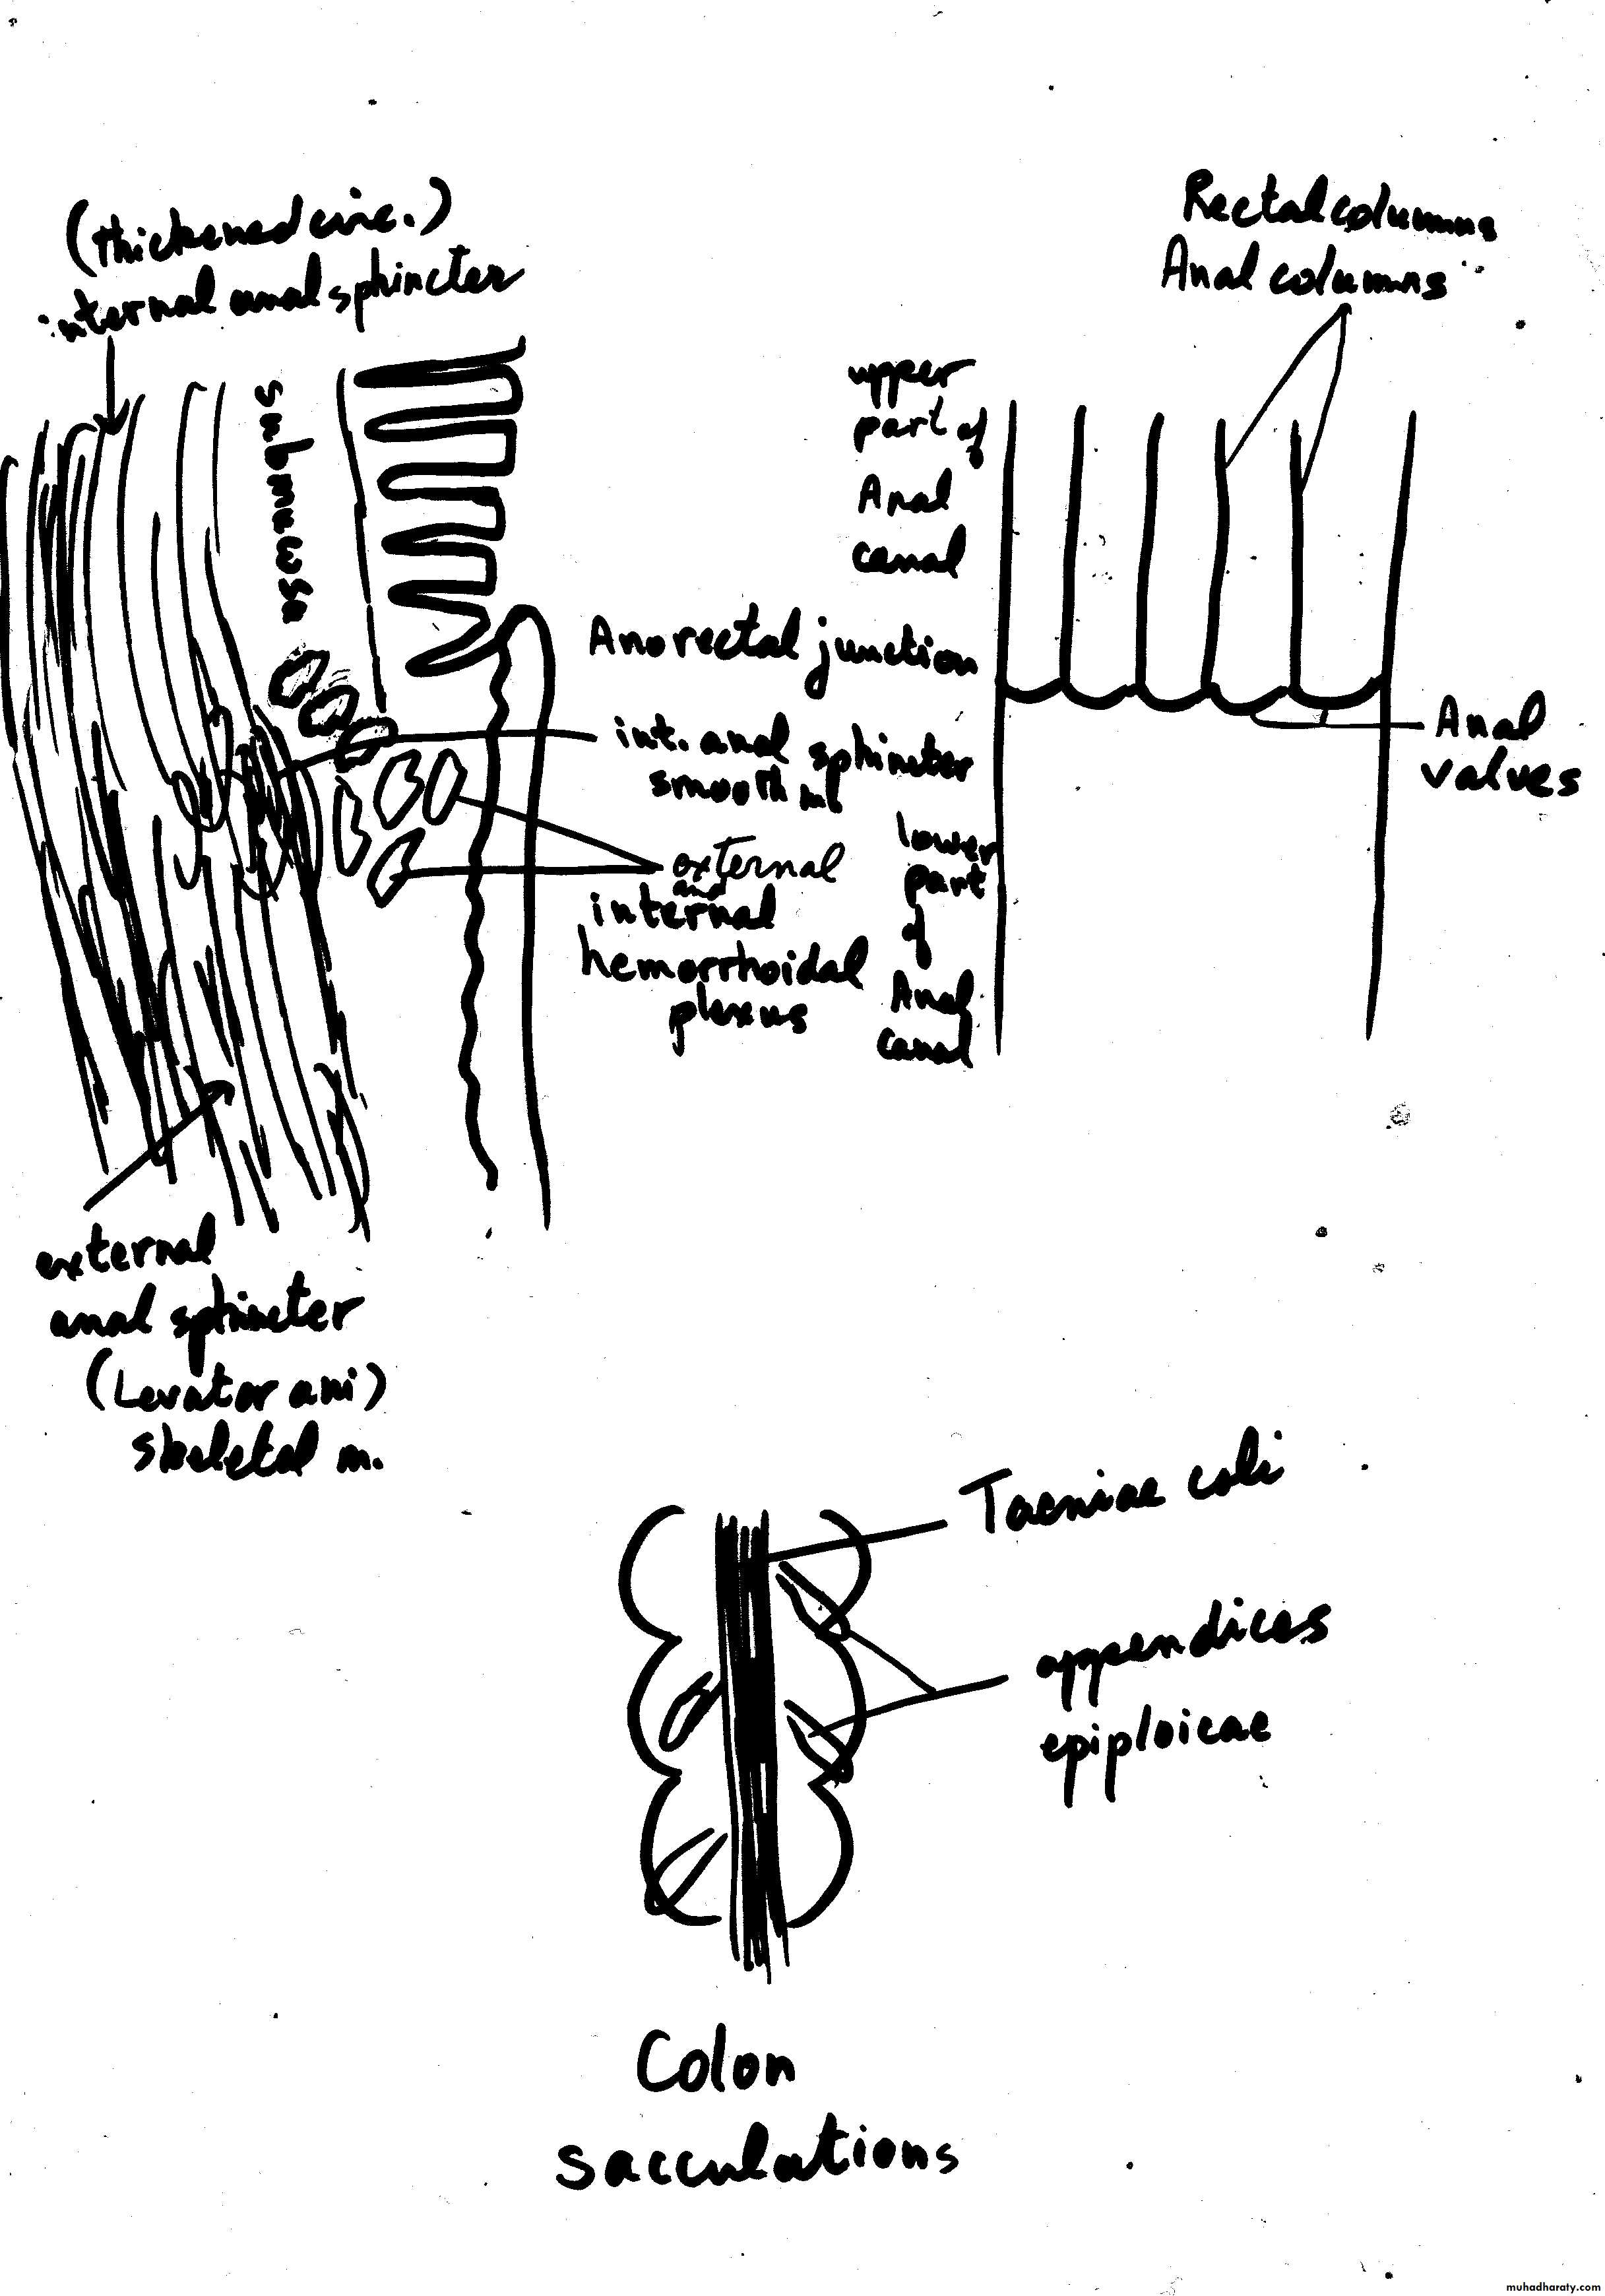 (thickened circ.)
internal anal sphincter
submucosa
Rectal columns
Anal columns
upper
part of
Anal
canal
Anorectal junction
int. anal sphincter
smooth
external
and
internal
hemorrhoidal
plexus
lower
part
of
Anal
canal
Anal
valves
external
anal sphincter
(Levator ani)
skeletal m.
Taeniae coli
appendices
epiploicae
Colon
sacculations
muhadharaty.com